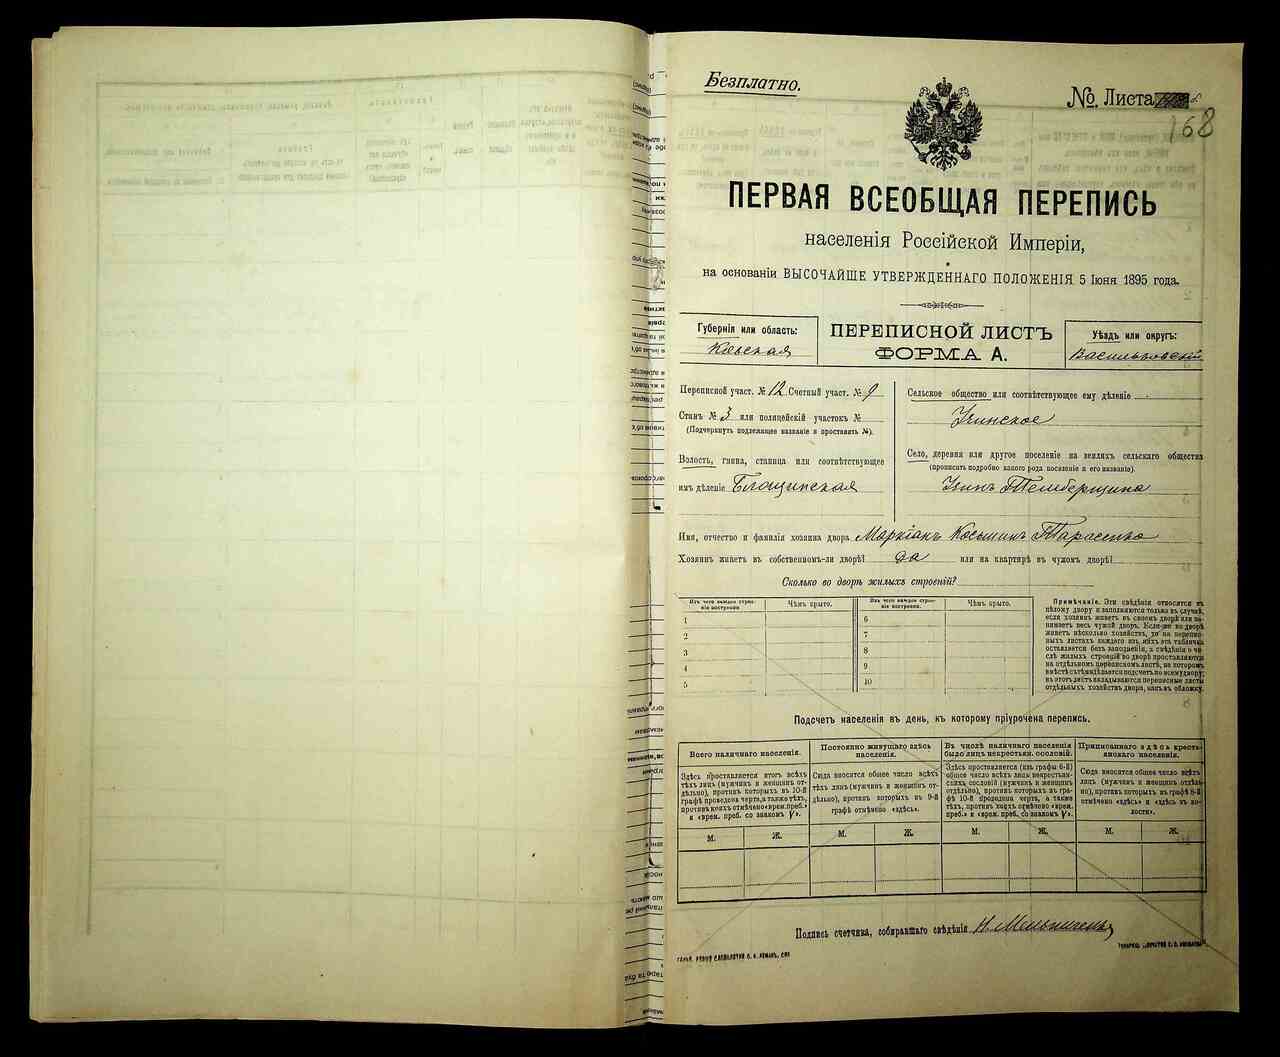 Безплатно.
№ Листа
168
ПЕРВАЯ ВСЕОБЩАЯ ПЕРЕПИСЬ
населенія Россійской Имперіи,
на основаніи ВЫСОЧАЙШЕ УТВЕРЖДЕННАГО ПОЛОЖЕНІЯ 5 Іюня 1895 года.
Губернія или область:
Кіевская
ПЕРЕПИСНОЙ ЛИСТЪ
ФОРМА А.
Уѣздъ или округъ:
Васильковскій
Переписной участ. № 12 Счетный участ. № 9
Станъ № 3 или полицейскій участокъ №
(Подчеркнуть подлежащее названіе и проставить №).
Волость, гмина, станица или соотвѣтствующее
имъ дѣленіе Блощинская
Сельское общество или соотвѣтствующее ему дѣленіе
Узинское
Село, деревня или другое поселеніе на земляхъ сельскаго общества
(прописать подробно какого рода поселеніе и его названіе).
Узинъ Темберщина
Имя, отчество и фамилія хозяина двора Маркіанъ Косьминъ Тарасенко
Хозяинъ живетъ въ собственномъ-ли дворѣ? да или на квартирѣ въ чужомъ дворѣ?
Сколько во дворѣ жилыхъ строеній?
Изъ чего каждое строеніе построено. Чѣмъ крыто. Изъ чего каждое строеніе построено. Чѣмъ крыто.
1 6
2 7
3 8
4 9
5 10
Примѣчаніе. Эти свѣдѣнія относятся къ
цѣлому двору и заполняются только въ случаѣ,
если хозяинъ живетъ въ своемъ дворѣ или занимаетъ
весь чужой дворъ. Если-же во дворѣ
живетъ нѣсколько хозяйствъ, то на переписныхъ
листахъ каждаго изъ нихъ эта табличка
оставляется безъ заполненія, а свѣдѣнія о числѣ
жилыхъ строеній во дворѣ проставляются
на отдѣльномъ переписномъ листѣ, на которомъ
вмѣстѣ съ тѣмъ дѣлается подсчетъ по всему двору;
въ этотъ листъ вкладываются переписные листы
отдѣльныхъ хозяйствъ двора, какъ въ обложку.
Подсчетъ населенія въ день, къ которому пріурочена перепись.
Всего наличнаго населенія.
Здѣсь проставляется итогъ всѣхъ
тѣхъ лицъ (мужчинъ и женщинъ отдѣльно),
противъ которыхъ въ 10-й
графѣ проведена черта, а также тѣхъ,
противъ коихъ отмѣчено «врем. преб.»
и «врем. преб. со знакомъ V».
Постоянно живущаго здѣсь
населенія.
Сюда вносится общее число всѣхъ
тѣхъ лицъ (мужчинъ и женщинъ отдѣльно),
противъ которыхъ въ 9-й
графѣ отмѣчено «здѣсь».
Въ числѣ наличнаго населенія
было лицъ некрестьян. сословій.
Здѣсь проставляется (изъ графы 6-й)
общее число всѣхъ лицъ некрестьянскихъ
сословій (мужчинъ и женщинъ
отдѣльно), противъ которыхъ въ графѣ
10-й проведена черта, а также
тѣхъ, противъ коихъ отмѣчено «врем.
преб.» и «врем. преб. со знакомъ V».
Приписаннаго здѣсь крестьянскаго
населенія.
Сюда вносится общее число всѣхъ
лицъ (мужчинъ и женщинъ отдѣльно),
противъ которыхъ въ графѣ 8-й
отмѣчено «здѣсь» и «здѣсь въ волости».
М. Ж. М. Ж. М. Ж. М. Ж.
Подпись счетчика, собиравшаго свѣдѣнія Н. Мельниченко